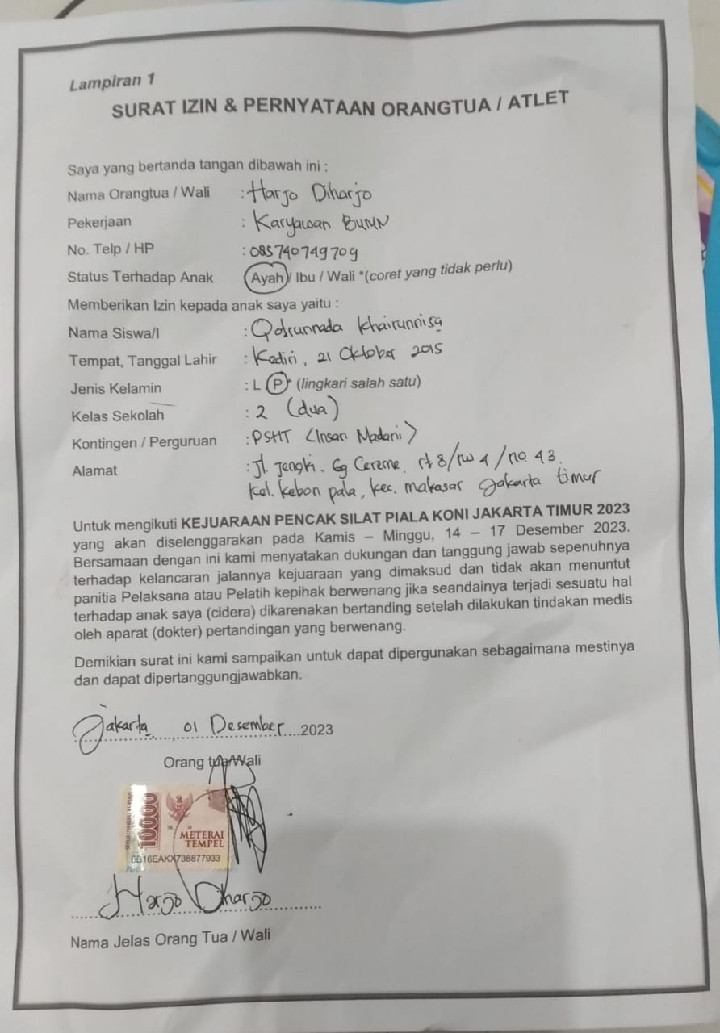 Lampiran 1
SURAT IZIN & PERNYATAAN ORANGTUA / ATLET
Saya yang bertanda tangan dibawah ini :
Nama Orangtua / Wali : Harjo Diharjo
Pekerjaan : Karyawan BUMN
No. Telp / HP : 085740749709
Status Terhadap Anak Ayah / Ibu / Wali *(coret yang tidak perlu)
Memberikan Izin kepada anak saya yaitu :
Nama Siswa/I : Qotrunnada Khairunnisa
Tempat, Tanggal Lahir : Kediri, 21 Oktober 2015
Jenis Kelamin : L P* (lingkari salah satu)
Kelas Sekolah : 2 (dua)
Kontingen / Perguruan : PSHT (Insan Madani)
Alamat : Jl. Jengki. Gg Cereme, rt 8/rw 4/no 43.
Kel. Kebon pala, kec. makasar Jakarta timur
Untuk mengikuti KEJUARAAN PENCAK SILAT PIALA KONI JAKARTA TIMUR 2023
yang akan diselenggarakan pada Kamis – Minggu, 14 – 17 Desember 2023.
Bersamaan dengan ini kami menyatakan dukungan dan tanggung jawab sepenuhnya
terhadap kelancaran jalannya kejuaraan yang dimaksud dan tidak akan menuntut
panitia Pelaksana atau Pelatih kepihak berwenang jika seandainya terjadi sesuatu hal
terhadap anak saya (cidera) dikarenakan bertanding setelah dilakukan tindakan medis
oleh aparat (dokter) pertandingan yang berwenang.
Demikian surat ini kami sampaikan untuk dapat dipergunakan sebagaimana mestinya
dan dapat dipertanggungjawabkan.
Jakarta 01 Desember 2023
Orang tua/Wali
10000
METERAI
TEMPEL
738877933
Harjo Diharjo
Nama Jelas Orang Tua / Wali